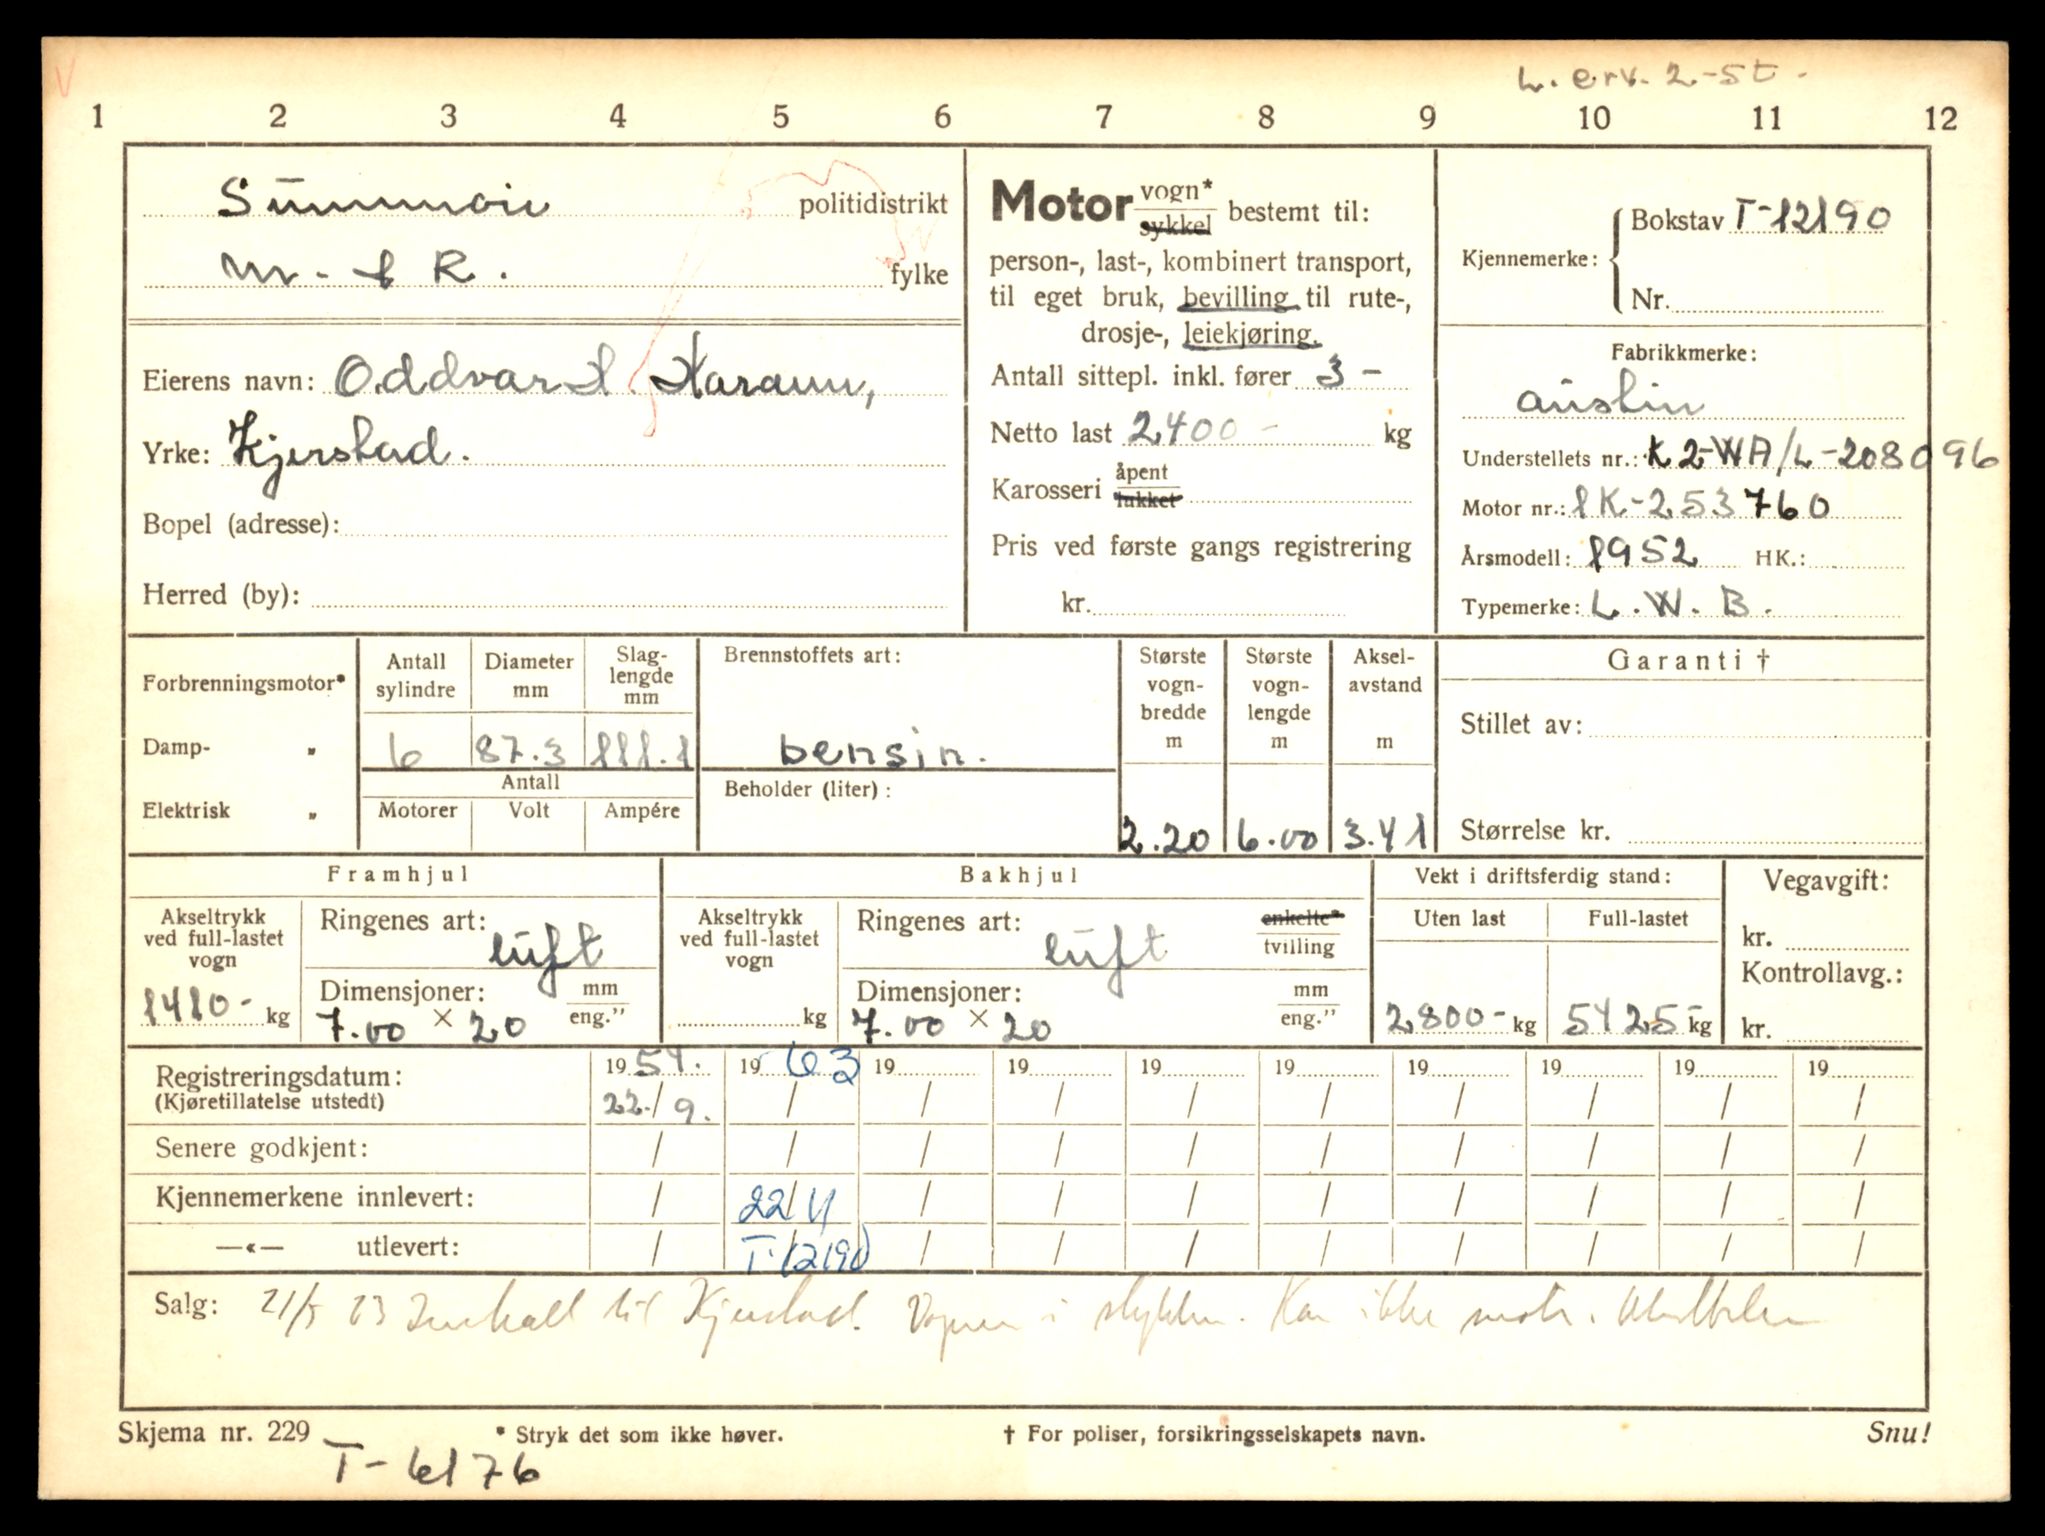 L. erv. 2-5t -
1 2 3 4 5 6 7 8 9 10 11 12
Sunnmøre politidistrikt
M. & R. fylke
Eierens navn: Oddvar K. Haram,
Yrke: Kjerstad.
Bopel (adresse):
Herred (by):
Motor vogn* sykkel bestemt til:
person-, last-, kombinert transport,
til eget bruk, bevilling til rute-,
drosje-, leiekjøring.
Antall sittepl. inkl. fører 3 -
Netto last 2400 - kg
Karosseri åpent lukket
Pris ved første gangs registrering
kr.
Kjennemerke: Bokstav T-12190
Nr.
Fabrikkmerke:
Austin
Understellets nr.: K2-WA/L-208096
Motor nr.: 1K-253760
Årsmodell: 1952 HK.:
Typemerke: L.W.B.
Forbrenningsmotor*
Damp- „
Elektrisk „
Antall sylindre
Diameter mm
Slag-lengde mm
6 87.3 111.1
Antall
Motorer Volt Ampére
Brennstoffets art:
bensin.
Beholder (liter):
Største vogn-bredde m
2.20
Største vogn-lengde m
6.00
Aksel-avstand m
3.41
Garanti †
Stillet av:
Størrelse kr.
Framhjul
Akseltrykk ved full-lastet vogn
1410- kg
Ringenes art: luft
Dimensjoner: mm eng."
7.00 × 20
Bakhjul
Akseltrykk ved full-lastet vogn
kg
Ringenes art: luft enkelte* tvilling
Dimensjoner: mm eng."
7.00 × 20
Vekt i driftsferdig stand:
Uten last Full-lastet
2800- kg 5425- kg
Vegavgift:
kr.
Kontrollavg.:
kr.
Registreringsdatum: 1954. 1963 19 19 19 19 19 19 19 19
(Kjøretillatelse utstedt) 22./9. / / / / / / / / /
Senere godkjent: / / / / / / / / / /
Kjennemerkene innlevert: / 22/ / / / / / / / /
—«— utlevert: / T-12190 / / / / / / / /
Salg: 21/5 63 til Kjerstad. Vognen i stykker. Har ikke
Skjema nr. 229 * Stryk det som ikke høver. † For poliser, forsikringsselskapets navn. Snu!
T-6176